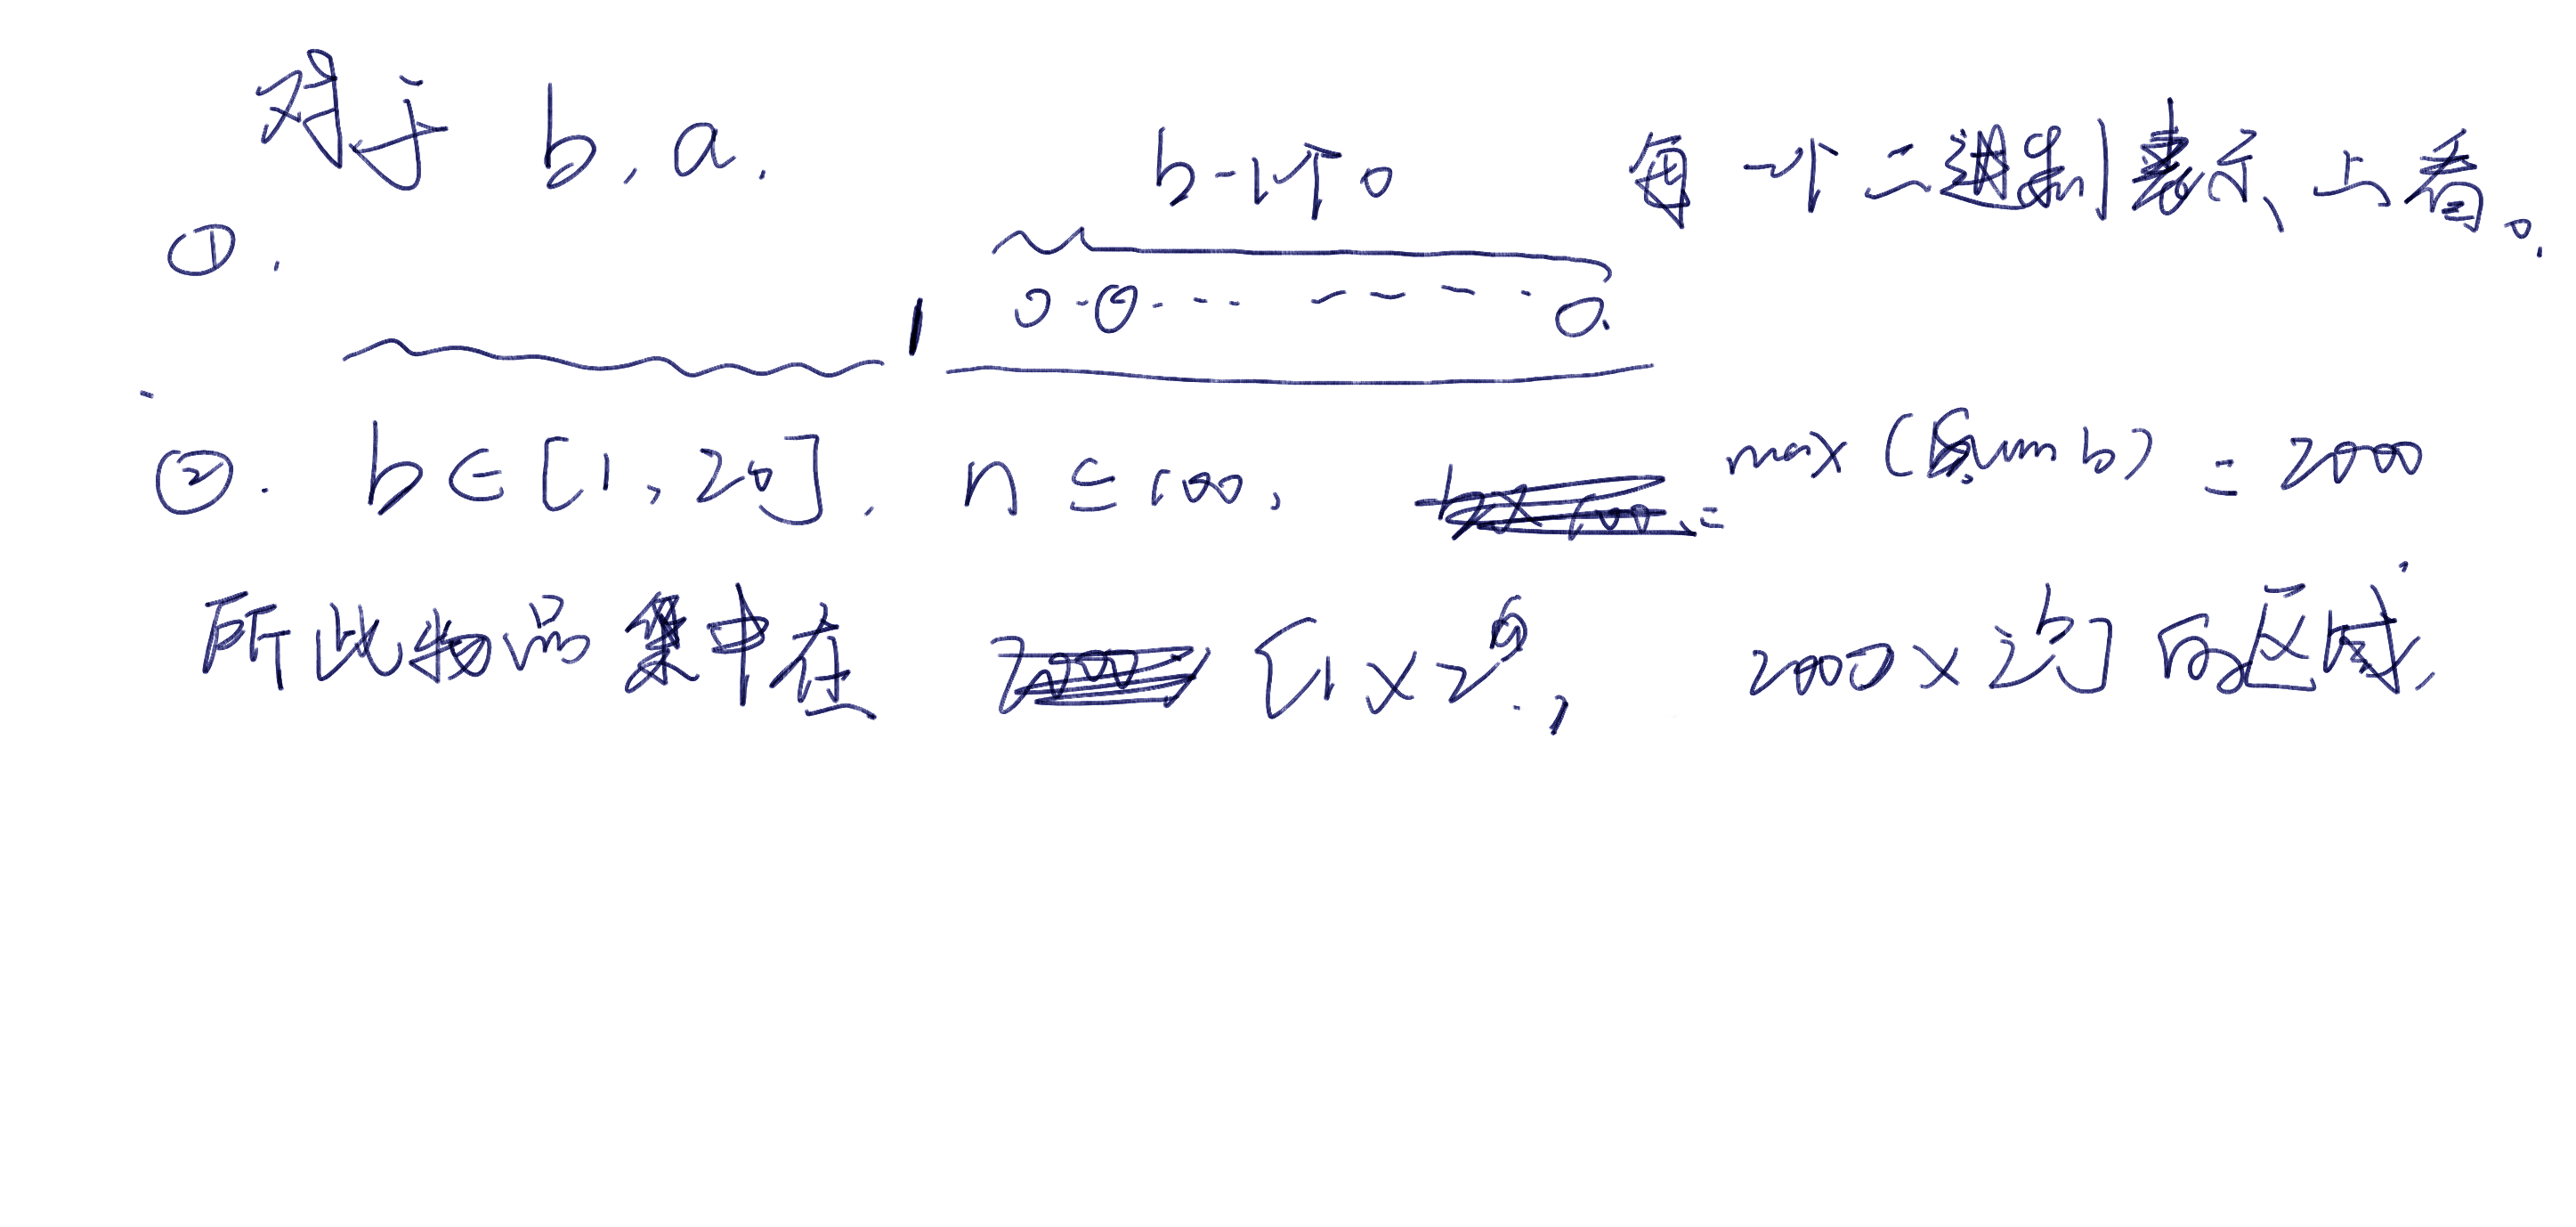 对于 b, a.
b-1个0 每一个二进制表示上看。
①.
1 0·0·--- ----·0.
②. b∈[1, 20]. n≤100, max(Sum b) = 2000
所此物品集中在 [1×2^b, 2000×2^b]的区域,